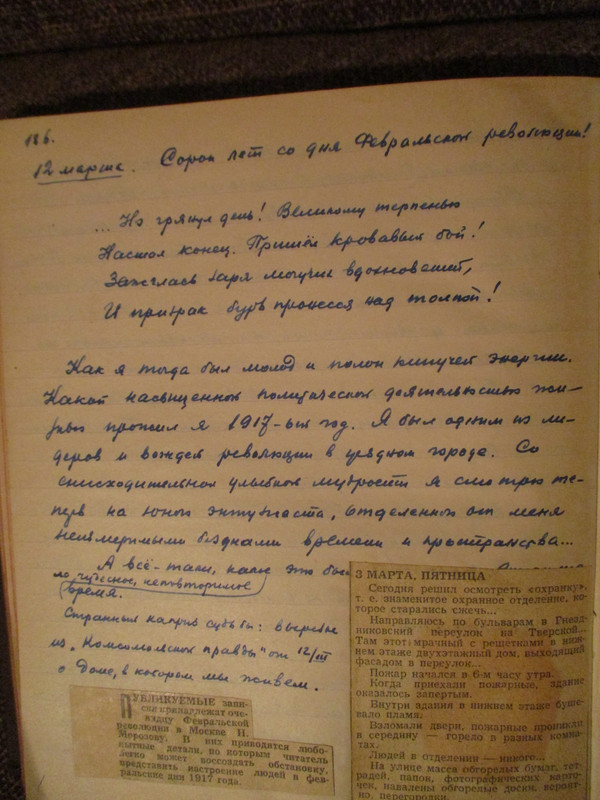 186.
12 марта. Сорок лет со дня Февральской революции!
...Но грянул день! Великому терпенью
Настал конец. Пришёл кровавый бой!
Зажглась заря могучих вдохновений,
И призрак бурь пронёсся над толпой!
Как я тогда был молод и полон кипучей энергии.
Какой насыщенной политической деятельностью
прожил я 1917-ый год. Я был одним из ли-
деров и вождей революции в уездном городе. Со
снисходительной улыбкой мудрости я смотрю те-
перь на юного энтузиаста, отделенного от меня
неизмеримыми безднами времени и пространства...
А всё-таки, какое это бы
ло чудесное, неповторимое
время.
Странный каприз судьбы: вырезка
из „Комсомольской правды" от 12/III
о доме, в котором мы живем.
ПУБЛИКУЕМЫЕ запи-
ски принадлежат оче-
видцу Февральской
революции в Москве Н.
Морозову. В них приводятся любо-
пытные детали, по которым читатель
легко может воссоздать обстановку,
представить настроение людей в фев-
ральские дни 1917 года.
3 МАРТА, ПЯТНИЦА
Сегодня решил осмотреть «охранку»,
т. е. знаменитое охранное отделение, ко-
торое старались сжечь...
Направляюсь по бульварам в Гнезд-
никовский переулок на Тверской...
Там этот мрачный с решетками в ниж-
нем этаже двухэтажный дом, выходящий
фасадом в переулок...
Пожар начался в 6-м часу утра.
Когда приехали пожарные, здание
оказалось запертым.
Внутри здания в нижнем этаже буше-
вало пламя.
Взломали двери, пожарные проникли
в середину — горело в разных комна-
тах.
Людей в отделении — никого...
На улице масса обгорелых бумаг, тет-
радей, папок, фотографических карто-
чек, навалены обгорелые доски, вероят-
но, перегородки.